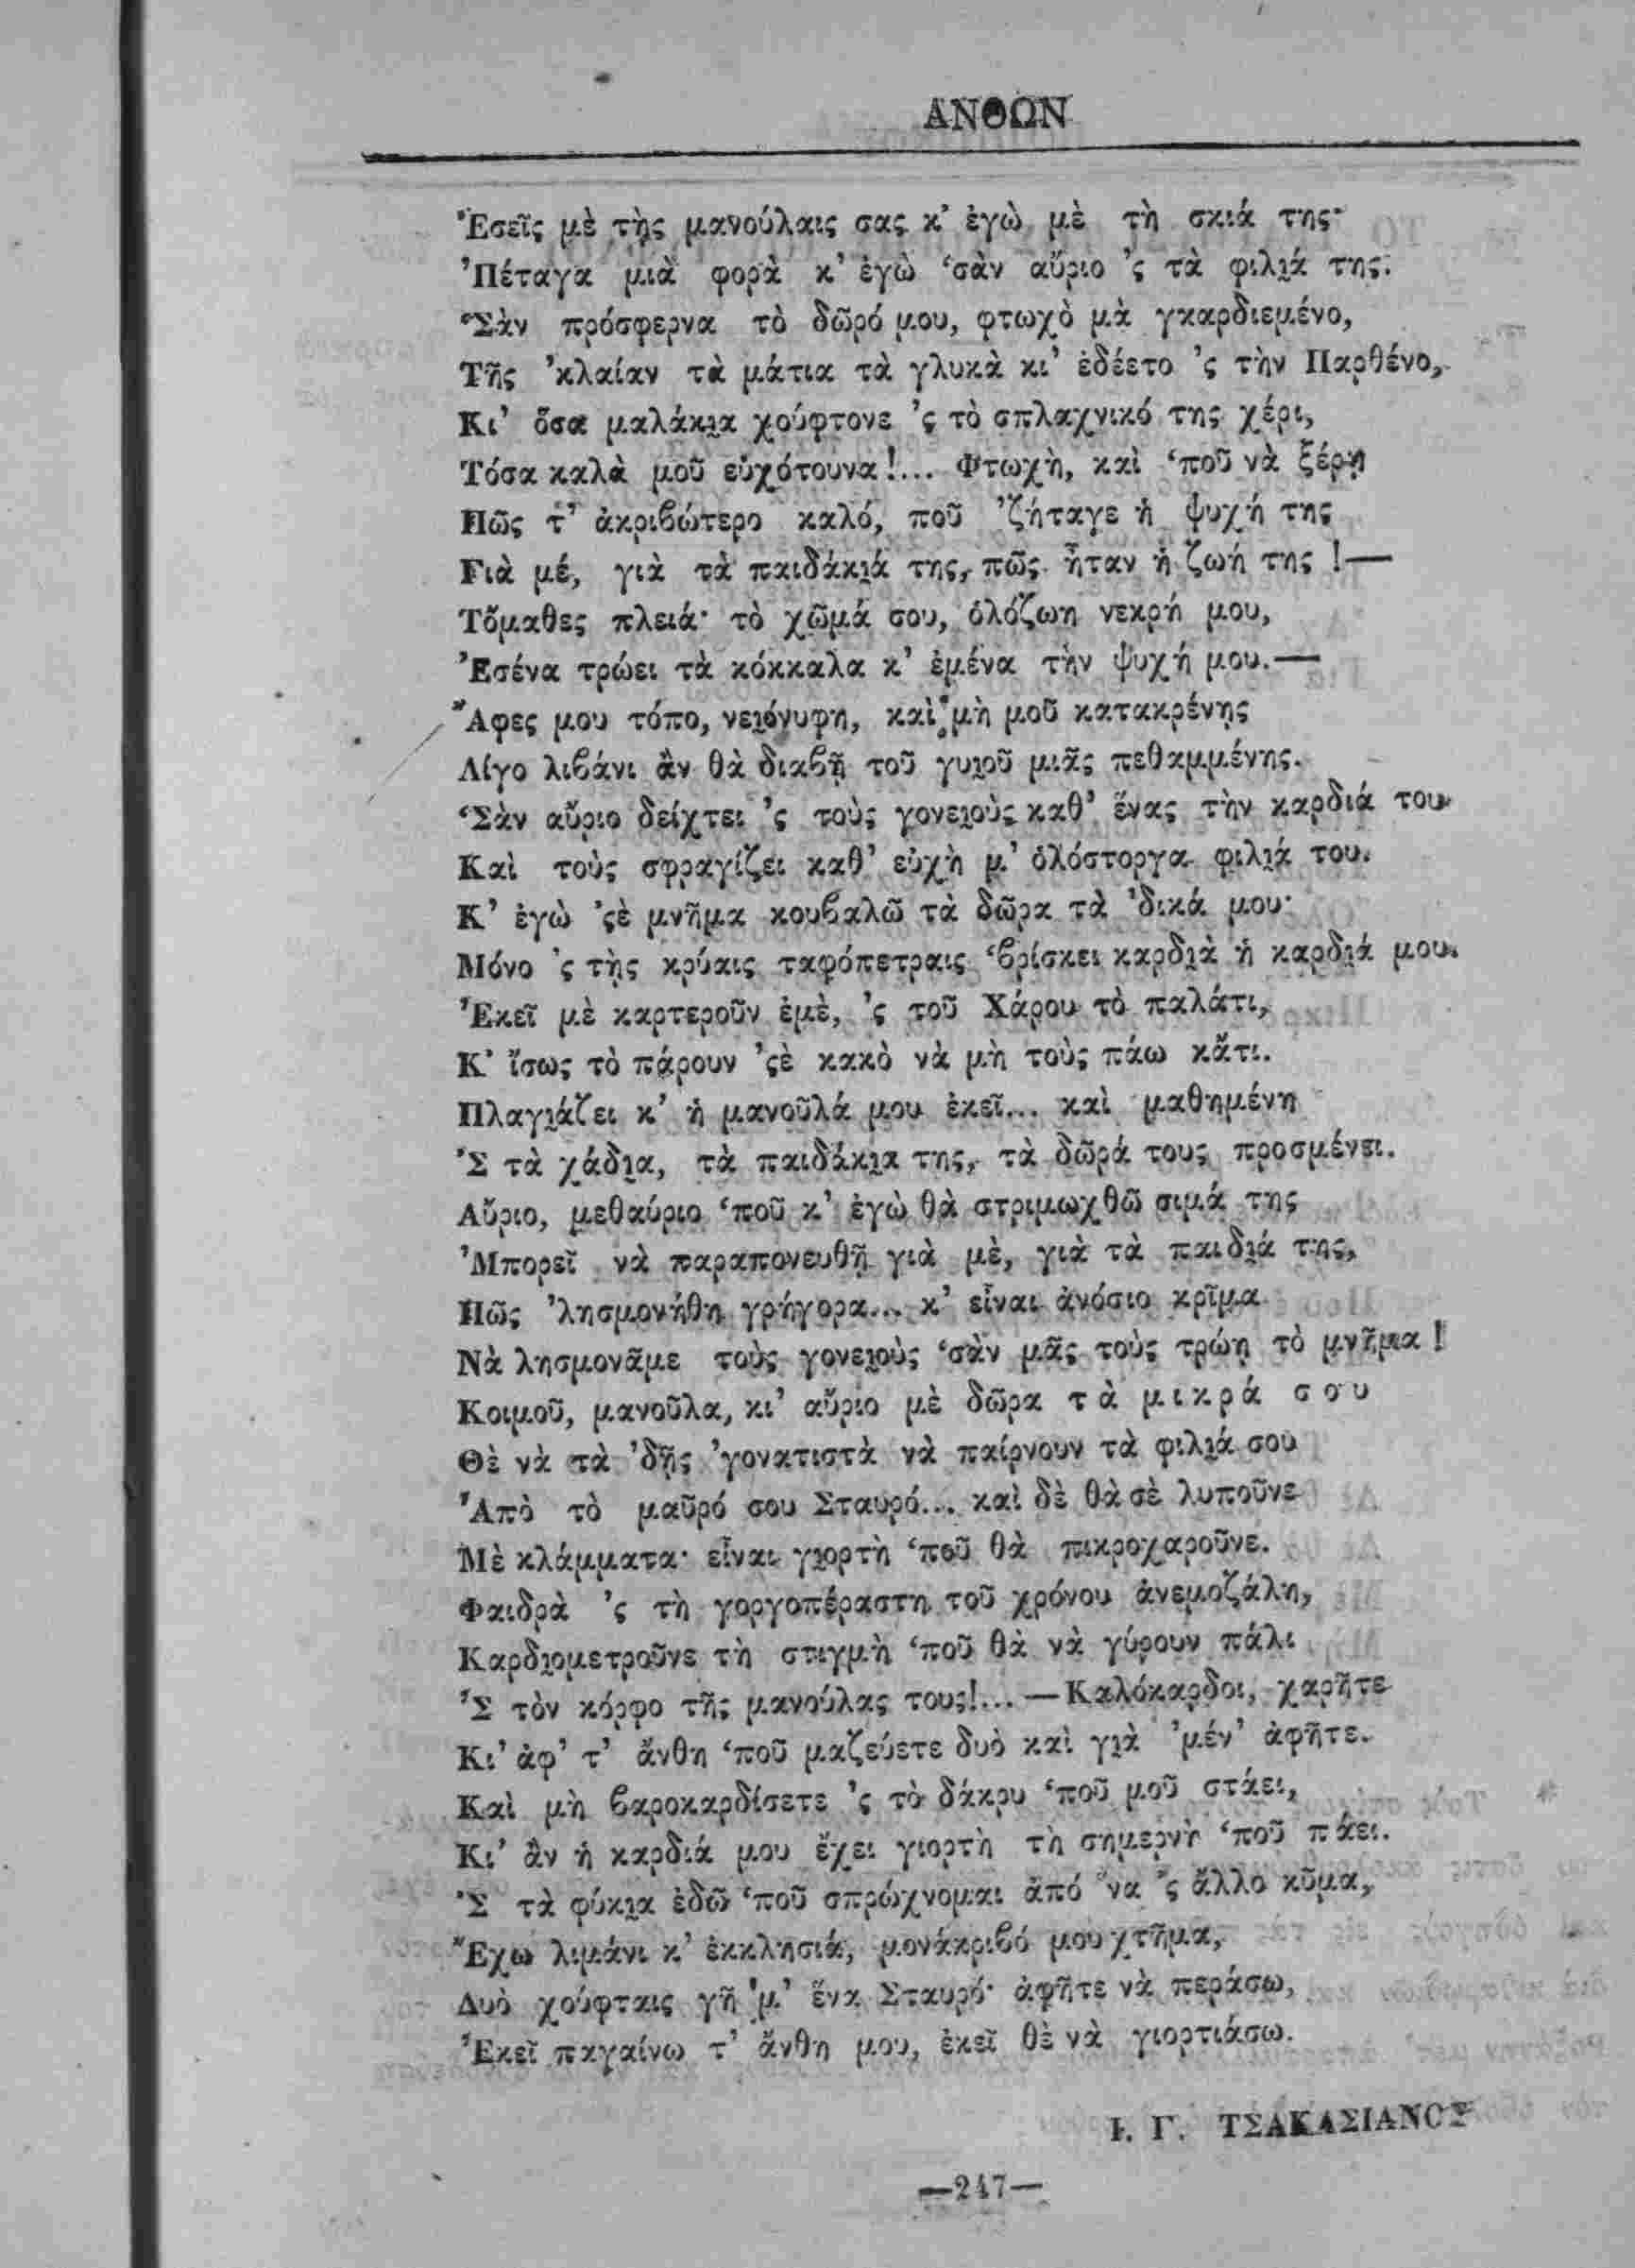 ΑΝΘΩΝ
Ἐσεῖς μὲ τὴς μανούλαις σας κ' ἐγὼ μὲ τὴ σκιά της·
'Πέταγα μιὰ φορὰ κ' ἐγὼ 'σὰν αὔριο 'ς τὰ φιλιά της.
'Σὰν πρόσφερνα τὸ δῶρό μου, φτωχὸ μὰ γκαρδιεμένο,
Τῆς 'κλαίαν τὰ μάτια τὰ γλυκὰ κι' ἐδέετο 'ς τὴν Παρθένο,
Κι' ὅσα μαλάκια χούφτονε 'ς τὸ σπλαχνικό της χέρι,
Τόσα καλὰ μοῦ εὐχότουνα!... Φτωχὴ, καὶ 'ποῦ νὰ ξέρῃ
Πῶς τ' ἀκριβώτερο καλό, ποῦ 'ζήταγε ἡ ψυχή της
Γιὰ μέ, γιὰ τὰ παιδάκιά της, πῶς ἦταν ἡ ζωή της !—
Τὄμαθες πλειά· τὸ χῶμά σου, ὁλόζωη νεκρή μου,
Ἐσένα τρώει τὰ κόκκαλα κ' ἐμένα τὴν ψυχή μου.—
Ἄφες μου τόπο, νειόνυφη, καὶ μὴ μοῦ κατακρένῃς
Λίγο λιβάνι ἂν θὰ διαβῇ τοῦ γυιοῦ μιᾶς πεθαμμένης.
'Σὰν αὔριο δείχτει 'ς τοὺς γονειοὺς καθ' ἕνας τὴν καρδιά του
Καὶ τοὺς σφραγίζει καθ' εὐχὴ μ' ὁλόστοργα φιλιά του.
Κ' ἐγὼ 'ςὲ μνῆμα κουβαλῶ τὰ δῶρα τὰ 'δικά μου·
Μόνο 'ς τὴς κρύαις ταφόπετραις 'βρίσκει καρδιὰ ἡ καρδιά μου.
Ἐκεῖ μὲ καρτεροῦν ἐμὲ, 'ς τοῦ Χάρου τὸ παλάτι,
Κ' ἴσως τὸ πάρουν 'ςὲ κακὸ νὰ μὴ τοὺς πάω κἄτι.
Πλαγιάζει κ' ἡ μανοῦλά μου ἐκεῖ... καὶ μαθημένη
'Σ τὰ χάδια, τὰ παιδάκια της, τὰ δῶρά τους προσμένει.
Αὔριο, μεθαύριο 'ποῦ κ' ἐγὼ θὰ στριμωχθῶ σιμά της
'Μπορεῖ νὰ παραπονευθῇ γιὰ μὲ, γιὰ τὰ παιδιά της,
Πῶς 'λησμονήθη γρήγορα... κ' εἶναι ἀνόσιο κρῖμα
Νὰ λησμονᾶμε τοὺς γονειοὺς 'σὰν μᾶς τοὺς τρώῃ τὸ μνῆμα !
Κοιμοῦ, μανοῦλα, κι' αὔριο μὲ δῶρα τὰ μικρά σου
Θὲ νὰ τὰ 'δῇς 'γονατιστὰ νὰ παίρνουν τὰ φιλιά σου
Ἀπὸ τὸ μαῦρό σου Σταυρό... καὶ δὲ θὰ σὲ λυποῦνε
Μὲ κλάμματα· εἶναι γιορτὴ 'ποῦ θὰ πικροχαροῦνε.
Φαιδρὰ 'ς τὴ γοργοπέραστη τοῦ χρόνου ἀνεμοζάλη,
Καρδιομετροῦνε τὴ στιγμὴ 'ποῦ θὰ νὰ γύρουν πάλι
'Σ τὸν κόρφο τῆς μανούλας τους!... —Καλόκαρδοι, χαρῆτε
Κι' ἀφ' τ' ἄνθη 'ποῦ μαζεύετε δυὸ καὶ γιὰ 'μέν' ἀφῆτε.
Καὶ μὴ βαροκαρδίσετε 'ς τὸ δάκρυ 'ποῦ μοῦ στάει,
Κι' ἂν ἡ καρδιά μου ἔχει γιορτὴ τὴ σημερνὴ 'ποῦ πάει.
'Σ τὰ φύκια ἐδῶ 'ποῦ σπρώχνομαι ἀπό 'να 'ς ἄλλο κῦμα,
Ἔχω λιμάνι κ' ἐκκλησιά, μονάκριβό μου χτῆμα,
Δυὸ χούφταις γῆ 'μ' ἕνα Σταυρό· ἀφῆτε νὰ περάσω,
Ἐκεῖ παγαίνω τ' ἄνθη μου, ἐκεῖ θὲ νὰ γιορτιάσω.
Ι. Γ. ΤΣΑΚΑΣΙΑΝΟΣ
—247—